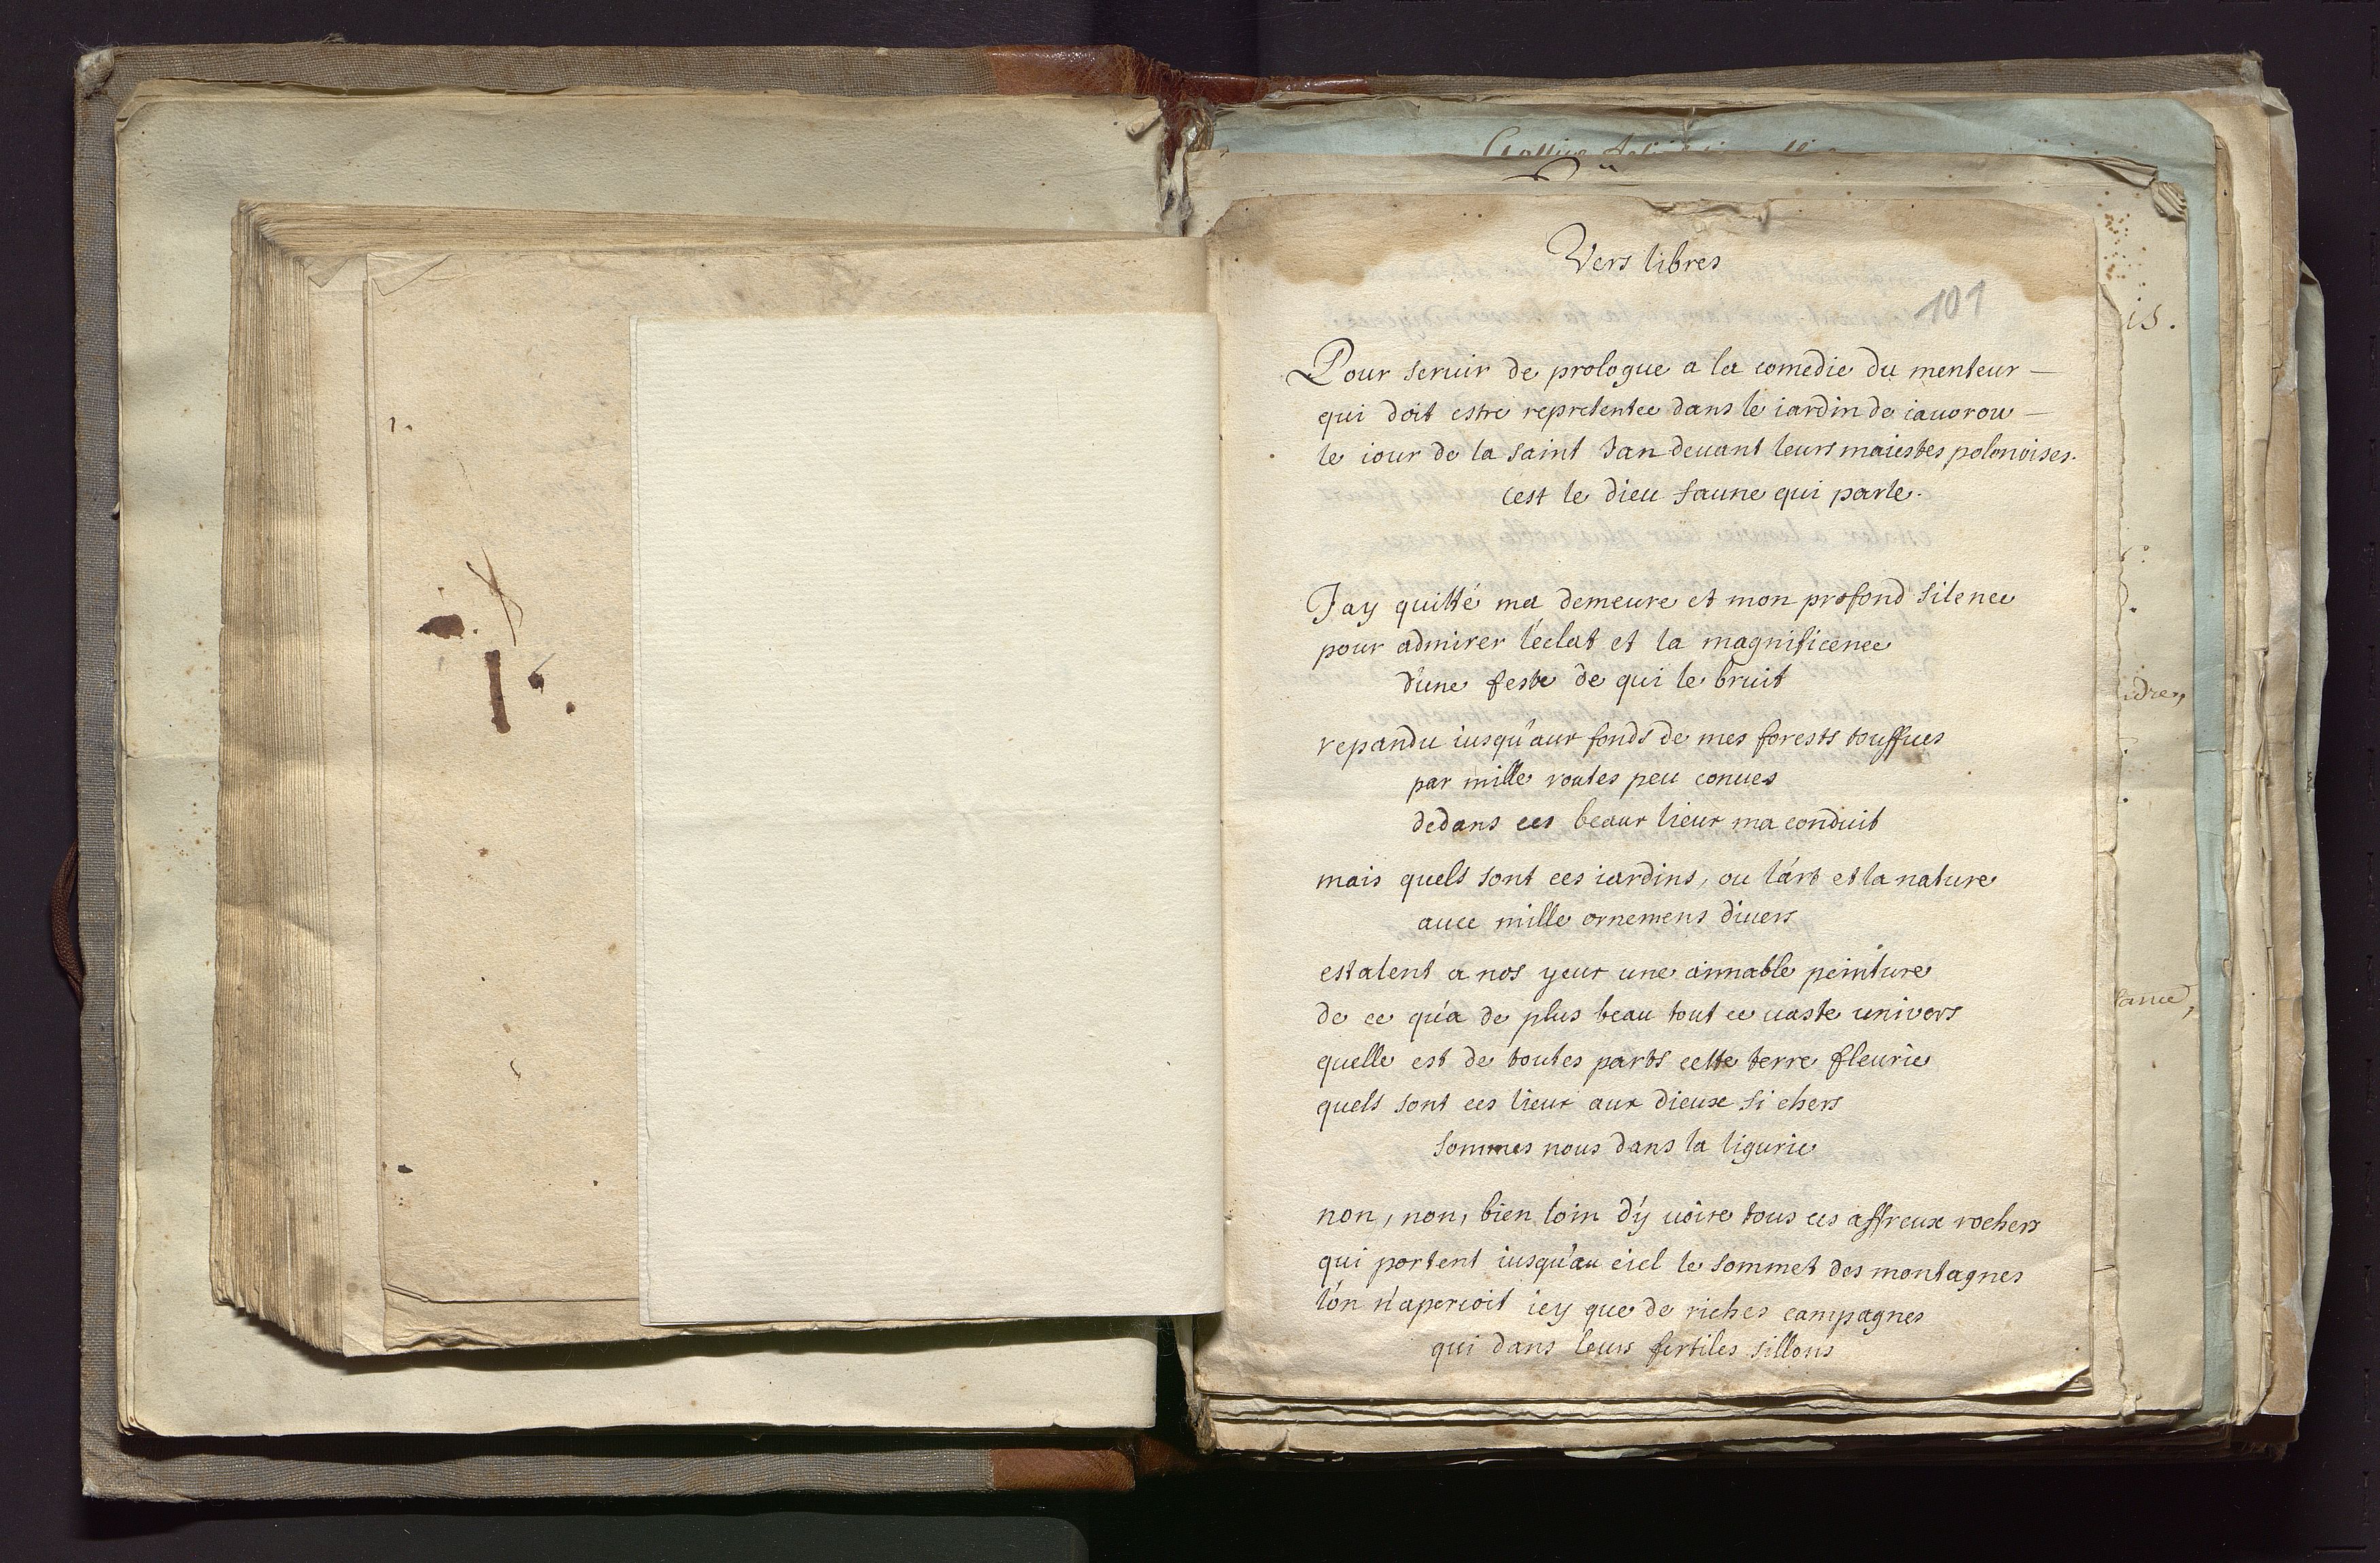 1.
Vers libres
101
Pour seruir de prologue a la comedie du menteur —
qui doit estre representee dans le iardin de iauorou —
le iour de la saint Jan deuant leurs maiestes polonoises.
cest le dieu faune qui parle.
Jay quitté ma demeure et mon profond silence
pour admirer l'éclat et la magnificence
d'une feste de qui le bruit
repandu iusqu'aux fonds de mes forests touffues
par mille routes peu conues
dedans ces beaux lieux ma conduit
mais quels sont ces iardins, ou l'art et la nature
auec mille ornemens diuers
estalent a nos yeux une aimable peinture
de ce qu'a de plus beau tout ce uaste univers
quelle est de toutes parts cette terre fleurie
quels sont ces lieux aux dieux si chers
sommes nous dans la ligurie
non, non, bien loin d'y uoire tous ces affreux rochers
qui portent iusqu'au ciel le sommet des montagnes
l'on n'apercoit icy que de riches campagnes
qui dans leurs fertiles sillons
is.